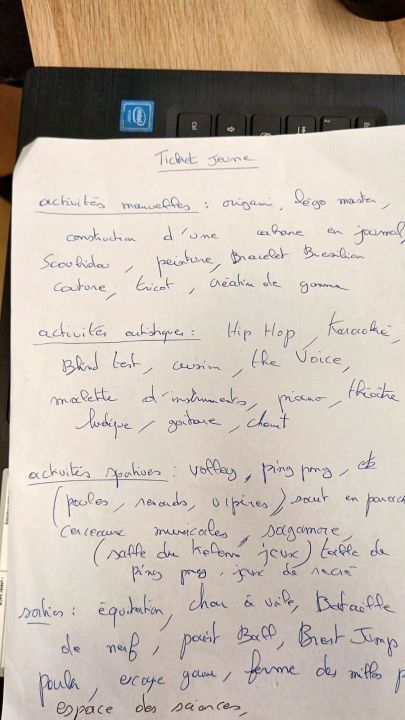 Ticket Jeune
activités manuelles : origami, légo master,
construction d'une cabane en journal,
Scoubidou, peinture, Bracelet Bresilien
Couture, tricot, création de gomme
activités artistiques : Hip Hop, Karaoké,
Blind test, cuisine, the Voice,
malette d'instruments, piano, théâtre
ludique, guitare, chant
activités sportives : volley, ping pong,
(poules, renards, vipères) saut en parac
Cerceaux musicales, sagamore,
(salle du jeux) table de
ping pong, jeux de recré
sorties : équitation, char à voile, Bataille
de nerf, paint Ball, Brest Jump
poula, escape game, ferme des milles p
espace des sciences,
intel
Ctrl